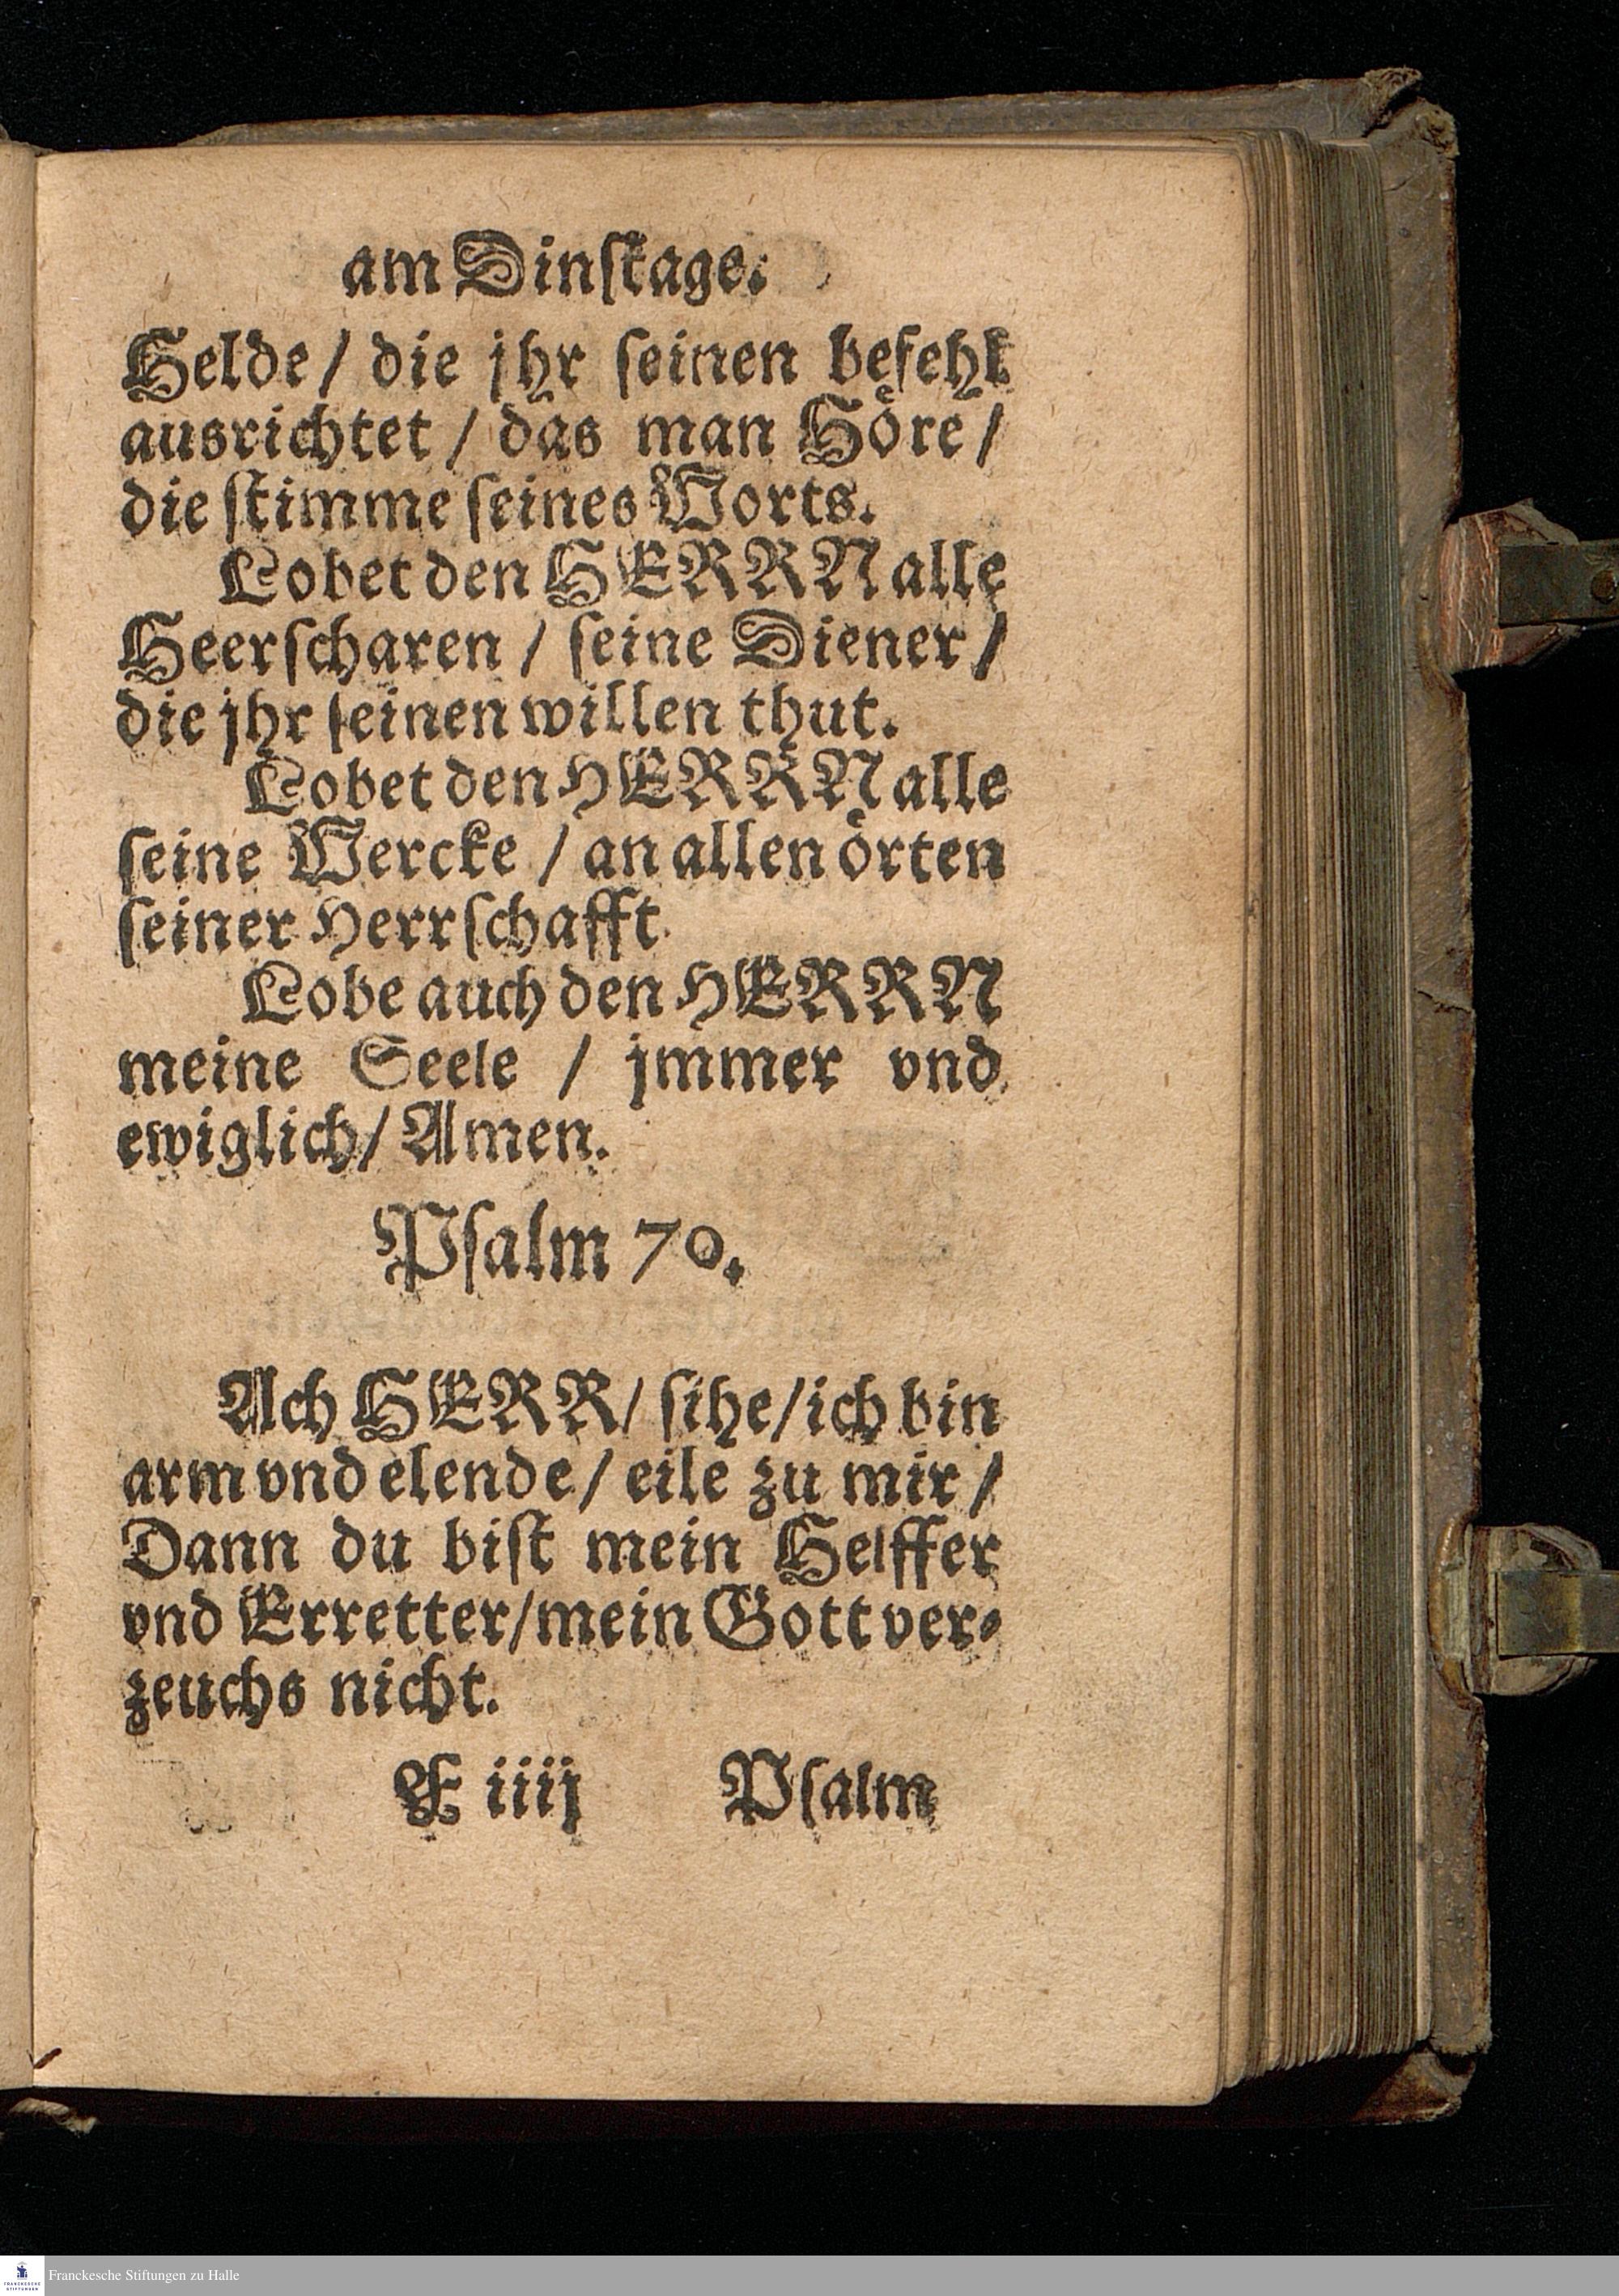 am Dinſtage.
Helde / die jhr ſeinen befehl
ausrichtet / das man Hoͤre /
die ſtimme ſeines Worts.
Lobet den HERRN alle
Heerſcharen / ſeine Diener /
die jhr ſeinen willen thut.
Lobet den HERRN alle
ſeine Wercke / an allen oͤrten
ſeiner Herrſchafft.
Lobe auch den HERRN
meine Seele / jmmer vnd
ewiglich / Amen.
Pſalm 70.
Ach HERR / ſihe / ich bin
arm vnd elende / eile zu mir /
Dann du biſt mein Helffer
vnd Erretter / mein Gott ver⸗
zeuchs nicht.
E iiij Pſalm
FRANCKESCHE STIFTUNGEN
Franckesche Stiftungen zu Halle